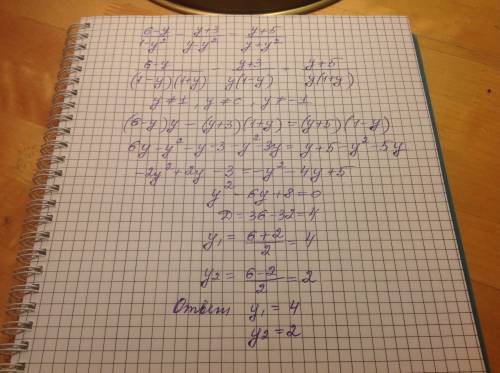 (6-y)/(1-y²) - (y+3)/(y-y²) = (y+5)/(y+y²)
(6-y)/((1-y)(1+y)) - (y+3)/(y(1-y)) = (y+5)/(y(1+y))
y≠1, y≠0, y≠-1
(6-y)y - (y+3)(1+y) = (y+5)(1-y)
6y-y²-y-3-y²-3y = y+5-y²-5y
-2y²+2y-3 = -y²-4y+5
y²-6y+8=0
D=36-32=4
y₁ = (6+2)/2 = 4
y₂ = (6-2)/2 = 2
Ответ y₁ = 4
y₂ = 2